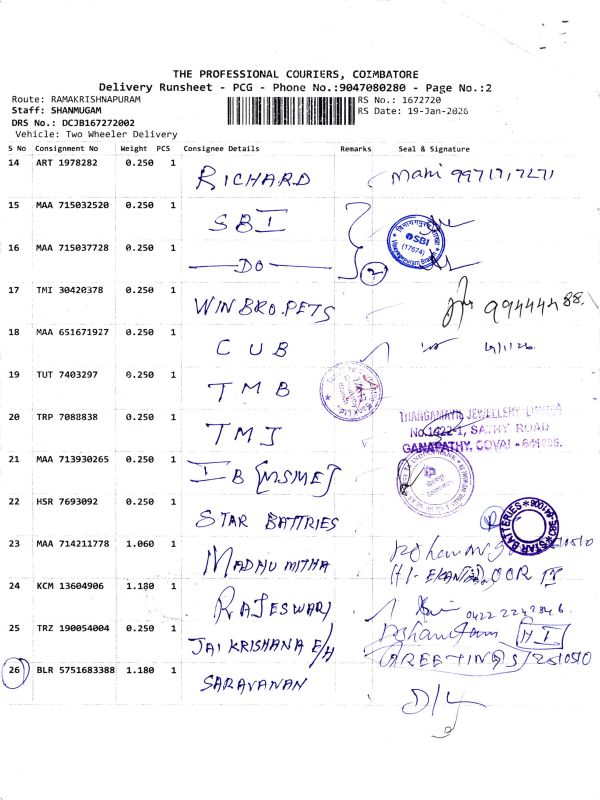 THE PROFESSIONAL COURIERS, COIMBATORE
Delivery Runsheet - PCG - Phone No.:9047080280 - Page No.:2
Route: RAMAKRISHNAPURAM
Staff: SHANMUGAM
DRS No.: DCJB167272002
Vehicle: Two Wheeler Delivery
RS No.: 1672720
RS Date: 19-Jan-2026
S No Consignment No Weight PCS Consignee Details Remarks Seal & Signature
14 ART 1978282 0.250 1 RICHARD Mani
15 MAA 715032520 0.250 1 SBI
SBI
(17674)
16 MAA 715037728 0.250 1 DO 2
17 TMI 30420378 0.250 1 WINBRO.PETS
18 MAA 651671927 0.250 1 CUB
19 TUT 7403297 0.250 1 TMB
20 TRP 7088838 0.250 1 TMJ
THANGAMAYIL JEWELLERY LIMITED
No.1422-1, SATHY ROAD
GANAPATHY, COVAI - 641006.
21 MAA 713930265 0.250 1 IB [MSME]
22 HSR 7693092 0.250 1 STAR BATTRIES
STAR BATTERIES
23 MAA 714211778 1.060 1 MADHUMITHA
24 KCM 13604906 1.180 1 RAJESWARI
25 TRZ 190054004 0.250 1 JAI KRISHANA E/H
HI
GREETINGS
26 BLR 5751683388 1.180 1 SARAVANAN
D/L